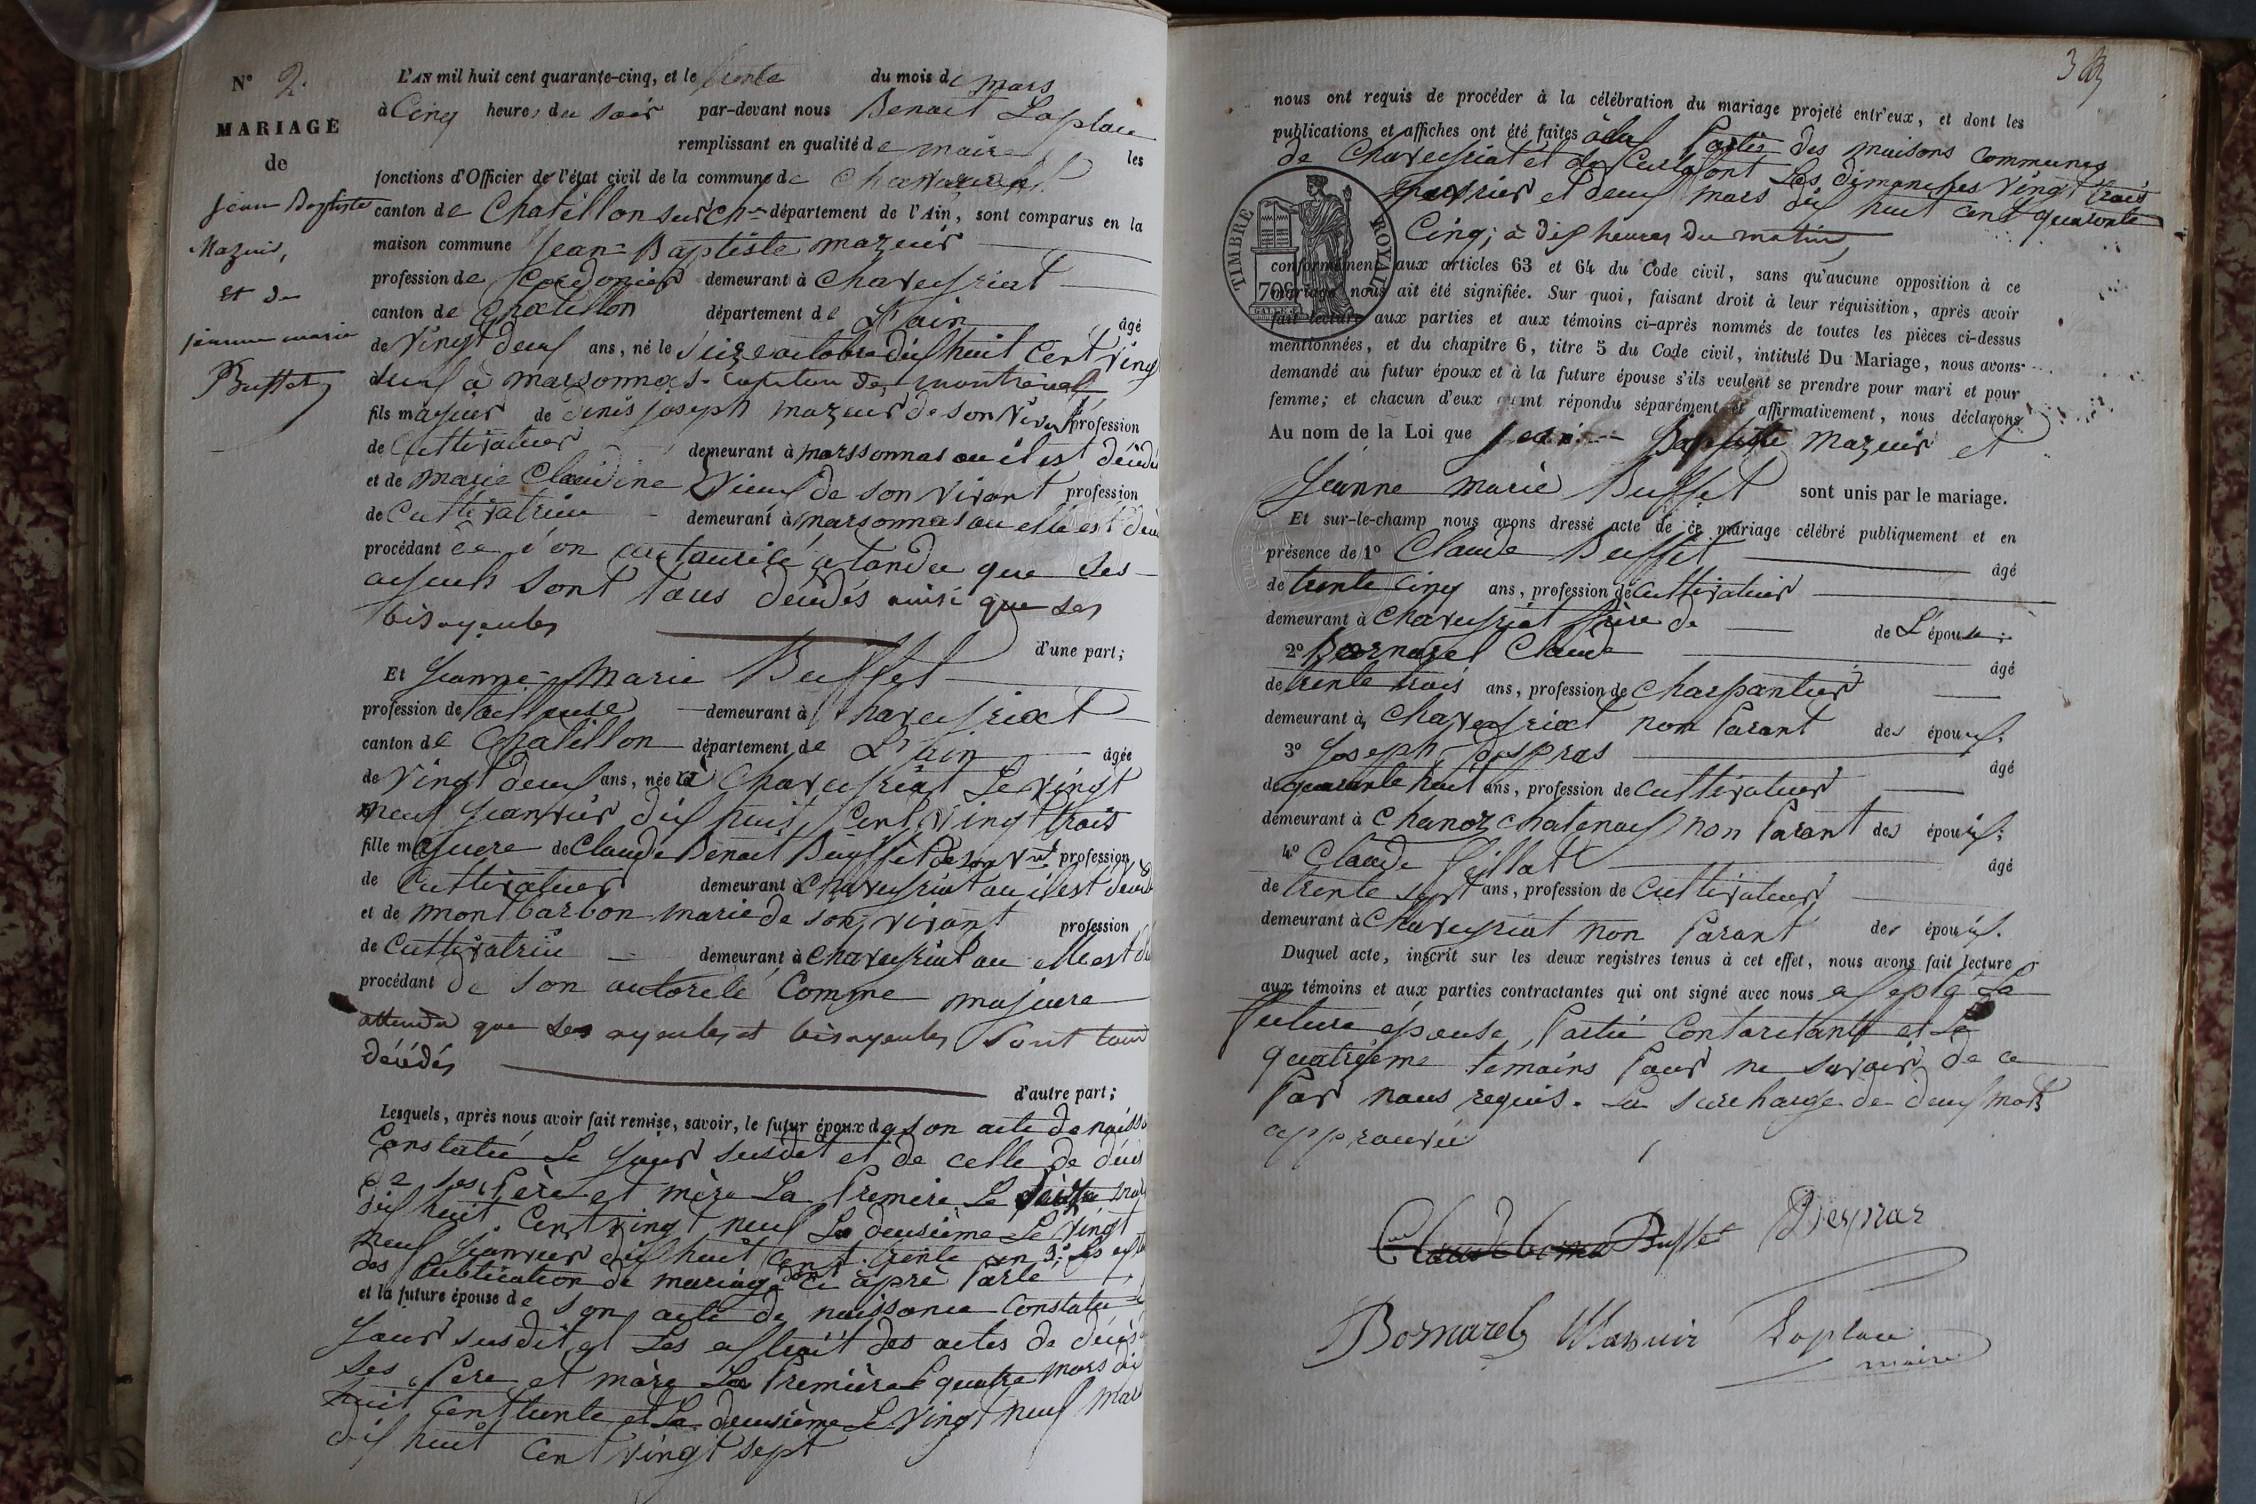 N° 2.
MARIAGE
de
jean Baptiste
Mazuir,
et de
jeanne marie
Buffet
L'AN mil huit cent quarante-cinq, et le trente du mois de mars
à Cinq heures du soir par-devant nous Benoit Laplace
remplissant en qualité de maire les
fonctions d'Officier de l'état civil de la commune de Chaveyriat
canton de Chatillon sur Ch.ne département de l'Ain, sont comparus en la
maison commune Jean-Baptiste mazuir
profession de Cordonier demeurant à Chaveyriat
canton de Chatillon département de L'ain âgé
de Vingt deux ans, né le seize octobre dix huit Cent Vingt
deux à marsonnas canton de montrevel
fils majeur de denis joseph mazuir de son Vivant profession
de Cultivateur demeurant à marssonnas ou il est décédé
et de marie Claudine Vieux de son Vivant profession
de Cultivatrice demeurant à marsonnas ou elle est
procédant de s'on autaurité atandu que ses
ayeuls sont taus décédés ainsi que ses
bisayeules
d'une part;
Et Jeanne-Marie Buffet
profession de tailleuse demeurant à Chaveyriat
canton de Chatillon département de L'ain âgée
de Vingt deux ans, née à Chaveyriat Le Vingt
neuf Janvier dix huit Cent Vingt trois
fille majeure de Claude Benoit Buffet de son Vnt profession
de Cultivateur demeurant à Chaveyriat ou il est
et de montbarbon marie de son vivant profession
de Cultivatrice demeurant à Chaveyriat ou elle est
procédant de son autorité Comme majeure
attendu que ses ayeules et bisayeules Sont tous
décédés
d'autre part;
Lesquels, après nous avoir fait remise, savoir, le futur époux de son acte de
Constatée Le Jour susdit et de celle de
de ses Père et mère La Premiere Le
dix huit Cent vingt neuf La deusième Le Vingt
neuf Janvier dix huit Cent trente un 3°
des Publication de mariage dont ci après Parlé
et la future épouse de son acte de naissance Constatée
Jour susdit et Les extrait des actes de décès
ses Père et mère La Première Le quatre mars dix
huit Cent trente et La deusième Le Vingt neuf
dix huit Cent Vingt sept
nous ont requis de procéder à la célébration du mariage projeté entr'eux, et dont les
publications et affiches ont été faites aux Portes des maisons Communes
de Chaveyriat et de Les dimanches Vingt trois
Fevrier et deux mars dix huit Cent quarante
Cinq; à dix heures du matin,
TIMBRE ROYAL
conformément aux articles 63 et 64 du Code civil, sans qu'aucune opposition à ce
mariage nous ait été signifiée. Sur quoi, faisant droit à leur réquisition, après avoir
fait lecture aux parties et aux témoins ci-après nommés de toutes les pièces ci-dessus
mentionnées, et du chapitre 6, titre 5 du Code civil, intitulé Du Mariage, nous avons
demandé au futur époux et à la future épouse s'ils veulent se prendre pour mari et pour
femme; et chacun d'eux ayant répondu séparément et affirmativement, nous déclarons
Au nom de la Loi que jean-Baptiste Mazuir et
Jeanne marie Buffet sont unis par le mariage.
Et sur-le-champ nous avons dressé acte de ce mariage célébré publiquement et en
présence de 1° Claude Buffet âgé
de trente cinq ans, profession de Cultivateur
demeurant à Chaveyriat frère de de L'épouse;
2° Bornarel Claude âgé
de trente trois ans, profession de Charpantier
demeurant à Chaveyriat non Parant des époux;
3° Joseph despras âgé
de quarante huit ans, profession de Cultivateur
demeurant à Chanoz chatenay non Parant des époux;
4° Claude âgé
de trente sept ans, profession de Cultivateur
demeurant à Chaveyriat non Parant des époux.
Duquel acte, inscrit sur les deux registres tenus à cet effet, nous avons fait lecture
aux témoins et aux parties contractantes qui ont signé avec nous La
future épouse, Partie Contaractante et Le
quatrième temoins Pour ne savoir de ce
Par nous requis. La surcharge de deux mots
approuvée
Buffet
Bornarel Masuir Laplace
maire